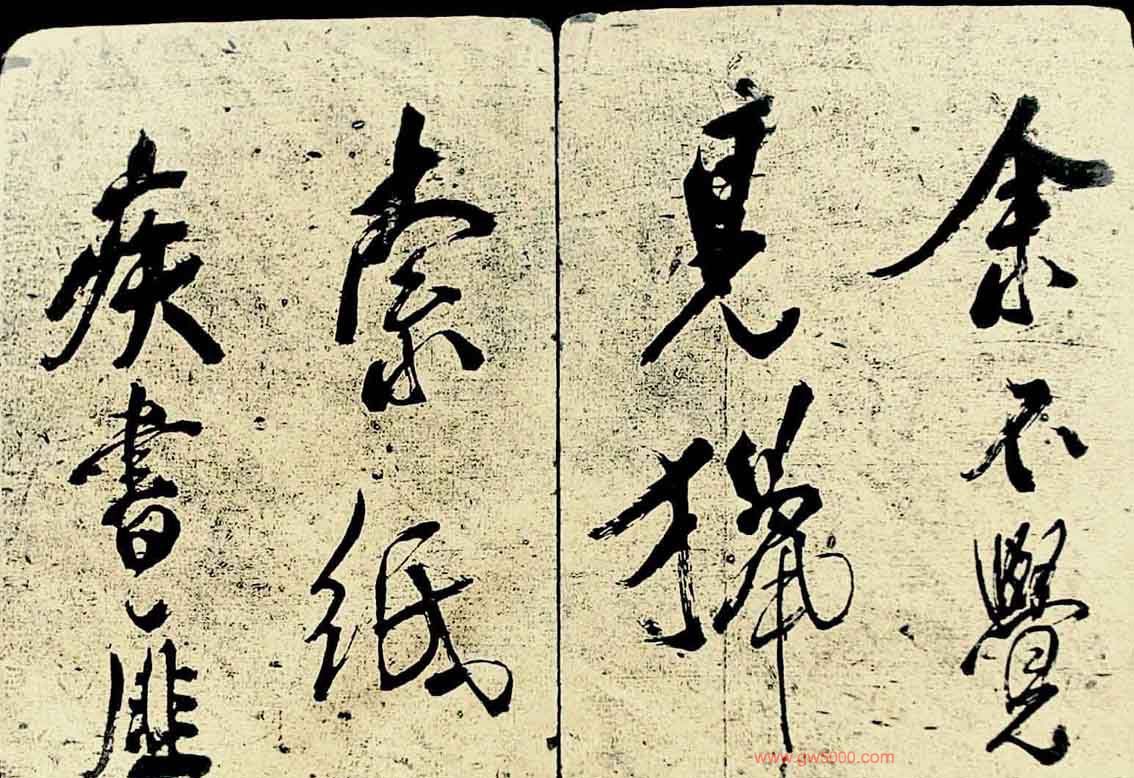 余不覺
見獵
索紙
疾書〻匪
www.gw5000.com